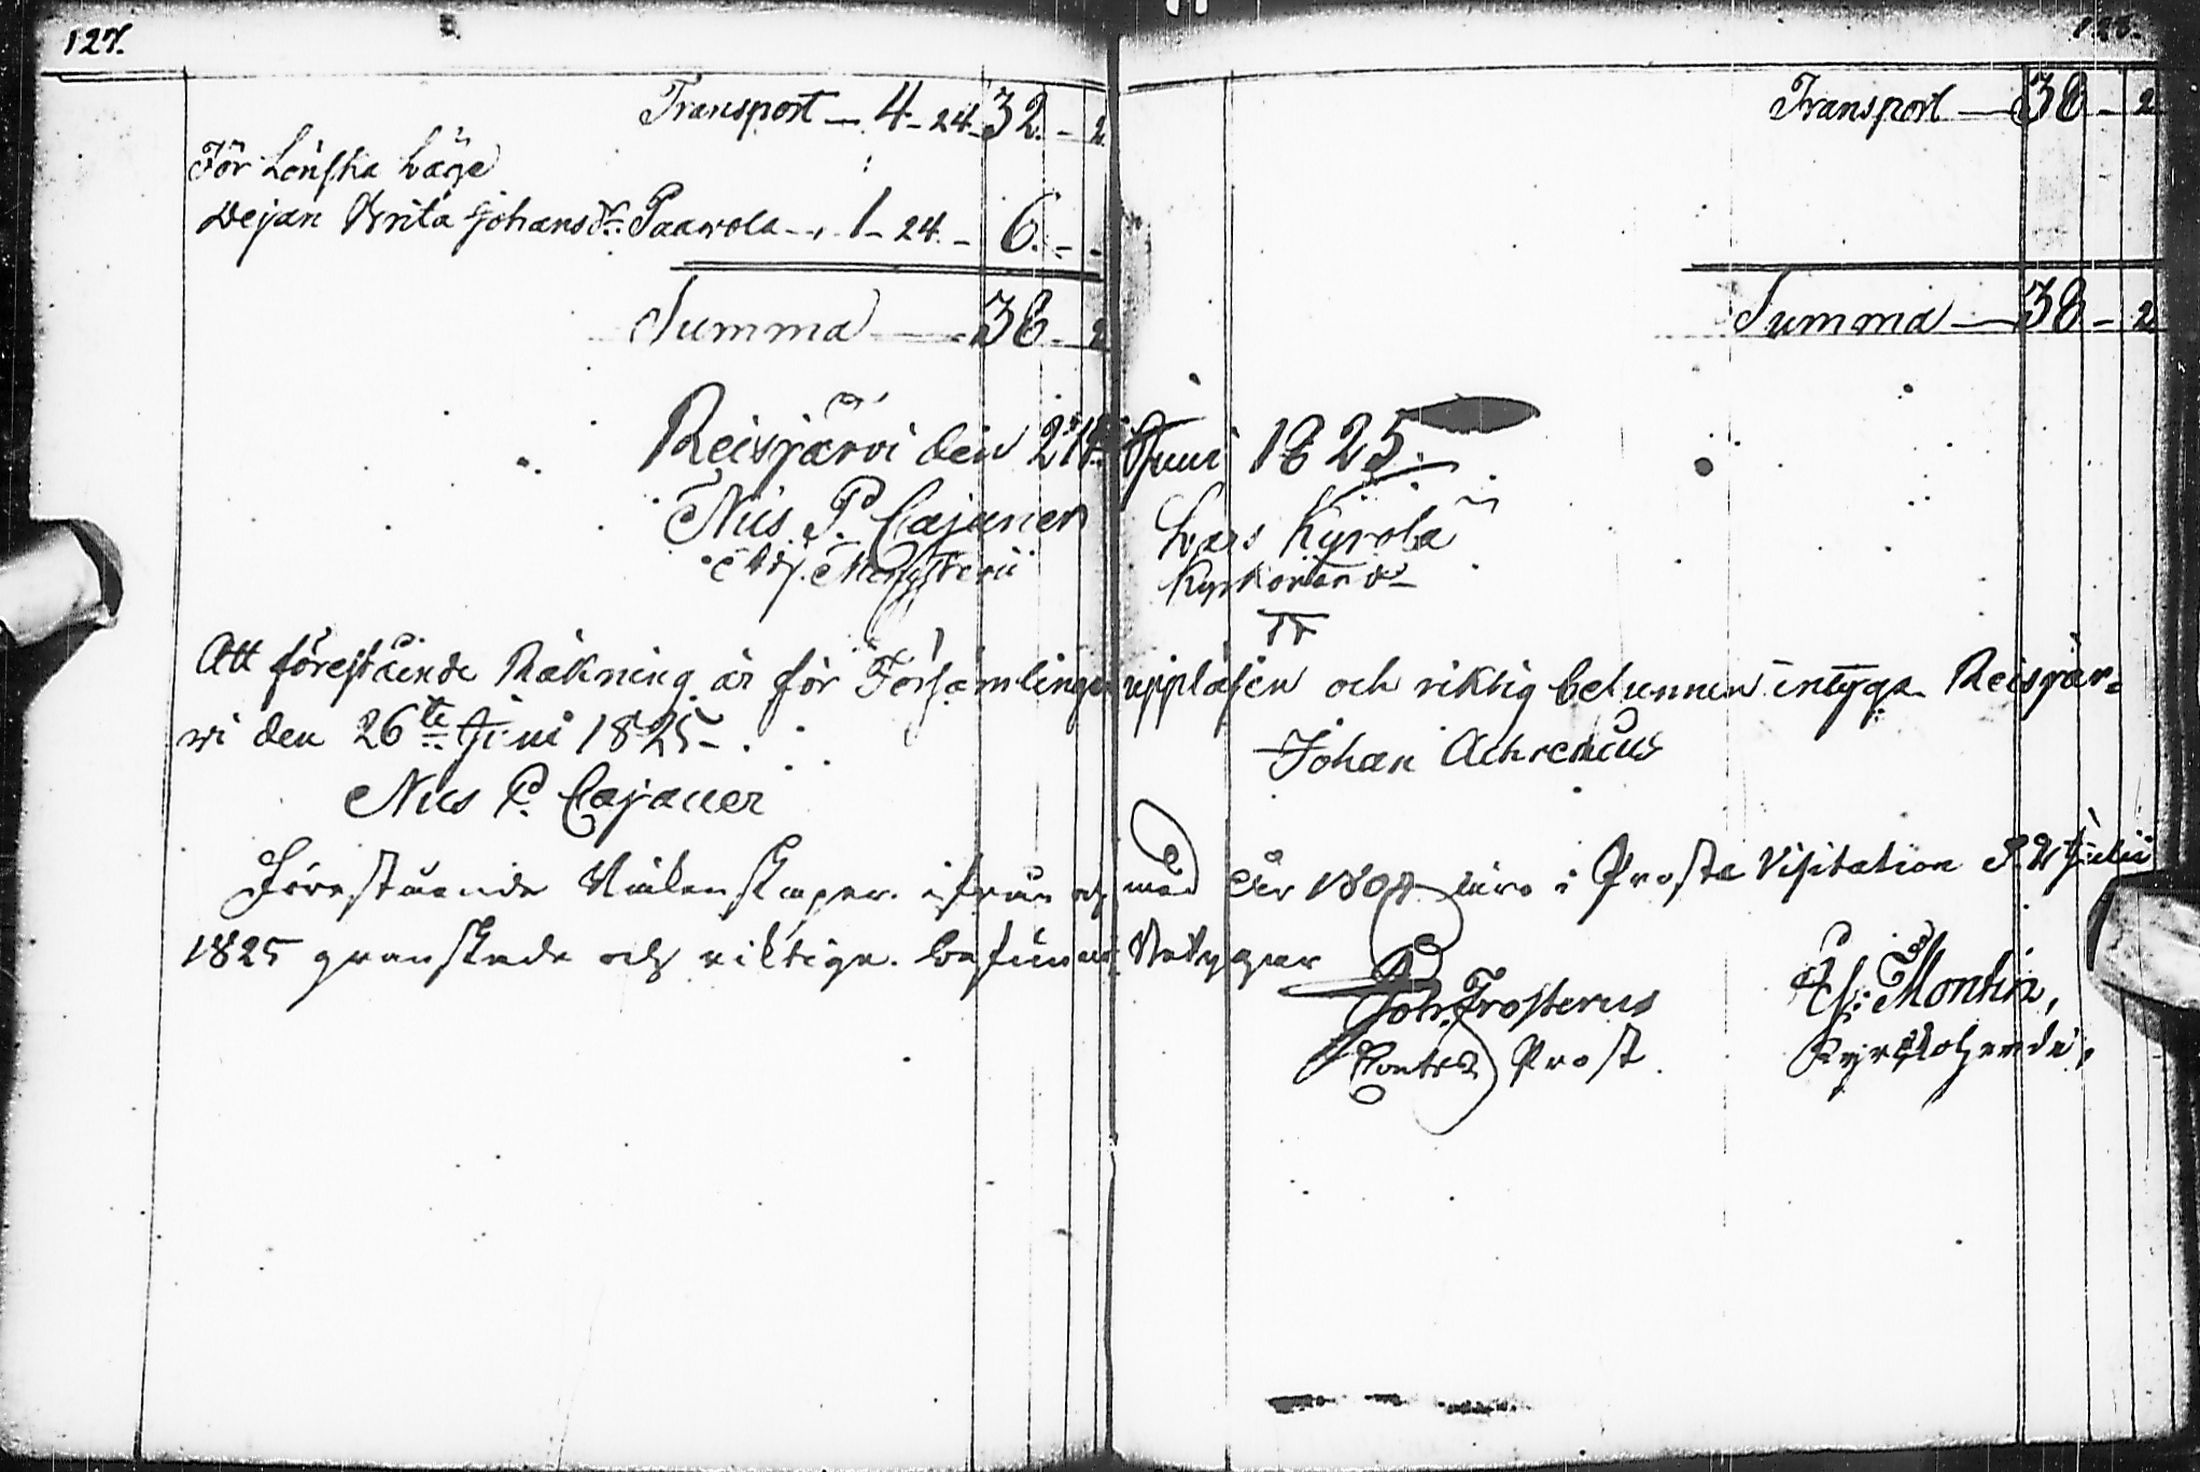 127.
Transport — 4 - 24 - 32. - 2.
För Lönska Läge
Pejan Brita Johansdr. Paawola - 1 - 24. - 6. - -
Summa — 38 - 2
Transport — 38 - 2
Summa — 38 - 2
Reisjärvi den Juni 1825.
Nils P. Cajaner
Adj. Ministerii
Lars Kyrölä
Kyrkovärd
Att förestående Räkning är för Församlingen uppläsen och riktig befunnen intyga Reisjär=
wi den 26te Juni 1825 -.
Johan Achrenius
Nils P. Cajaner
Förestående Räkenskaper ifrån och med år 1808 äro i Prosta Visitation d. 2 Julii
1825 granskade och riktige befunne Betygar
Joh. Frosterus
Contr. Prost.
Es: Montin,
Kyrkoherde.